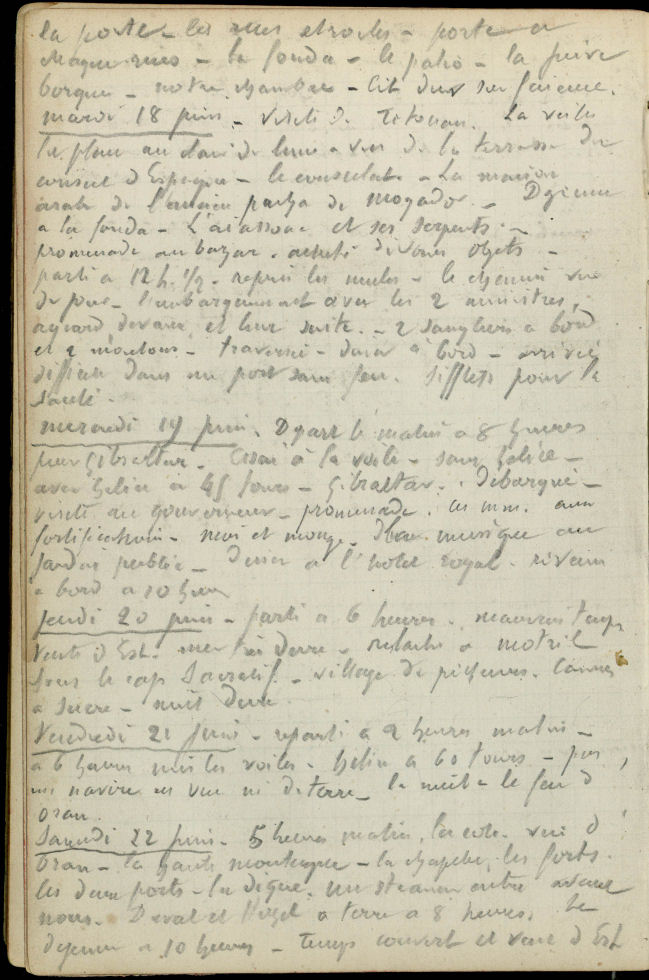 la porte - les rues etroites - porte a
- la fonda - le patio - la juive
- notre chambre - lit dur
mardi 18 juin - visite de Tetouan. La ville
au clair de lune - vue de la terrasse du
consul d Espagne - le consulat - La maison
arabe de l'ancien pacha de mogador -
a la fonda - L'aissaoua et ses serpents -
promenade au bazar - acheté divers objets -
parti a 12 h. 1/2 - repris les mules - le chemin
- l'embarquement avec les 2 ministres,
et leur suite. - 2 sangliers a bord
et 2 moutons - traversée - diner a bord - arrivée
difficile dans un port sans feu. Sifflets pour la
santé -
mercredi 19 juin. Depart le matin a 8 heures
pour Gibraltar - Essai à la voile - sans helice -
avec helice a 45 tours - Gibraltar - débarqué -
visite au gouverneur - promenade aux
fortifications - musique au
jardin public - Diner a l'hotel royal - revenu
a bord a 10 heures
Jeudi 20 juin - parti a 6 heures - mauvais temps
Vent d Est - mer très dure - relache a motril
sous le cap Sacratif - village de pêcheurs. Cannes
a sucre - nuit dure
Vendredi 21 juin - reparti a 2 heures matin -
a 6 heures mis les voiles - helice a 60 tours - pas
un navire en vue ni de terre - la nuit le feu d
oran.
Samedi 22 juin - 5 heures matin, la cote - vue d
Oran - la haute montagne - la chapelle, les forts.
les deux ports - la digue. Un steamer entre avant
nous - Duval et a terre a 8 heures.
dejeuner a 10 heures - Temps couvert et vent d Est